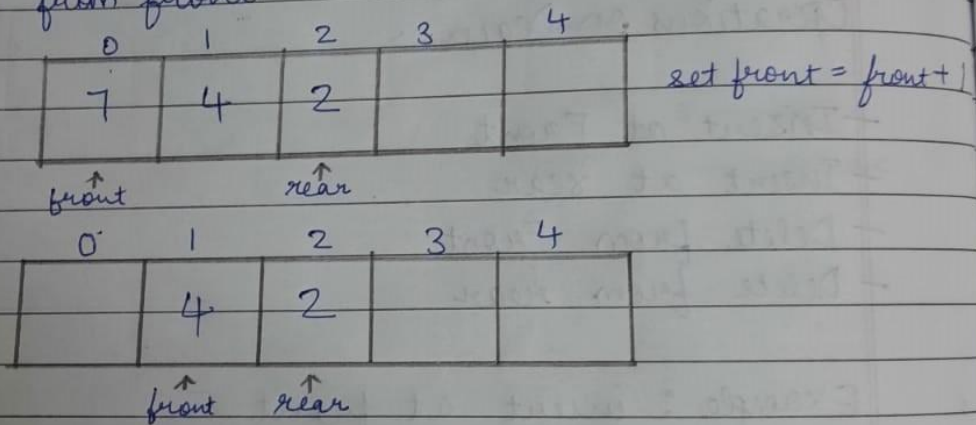 from front
0 1 2 3 4
7 4 2 set front = front + 1
front rear
0 1 2 3 4
4 2
front rear